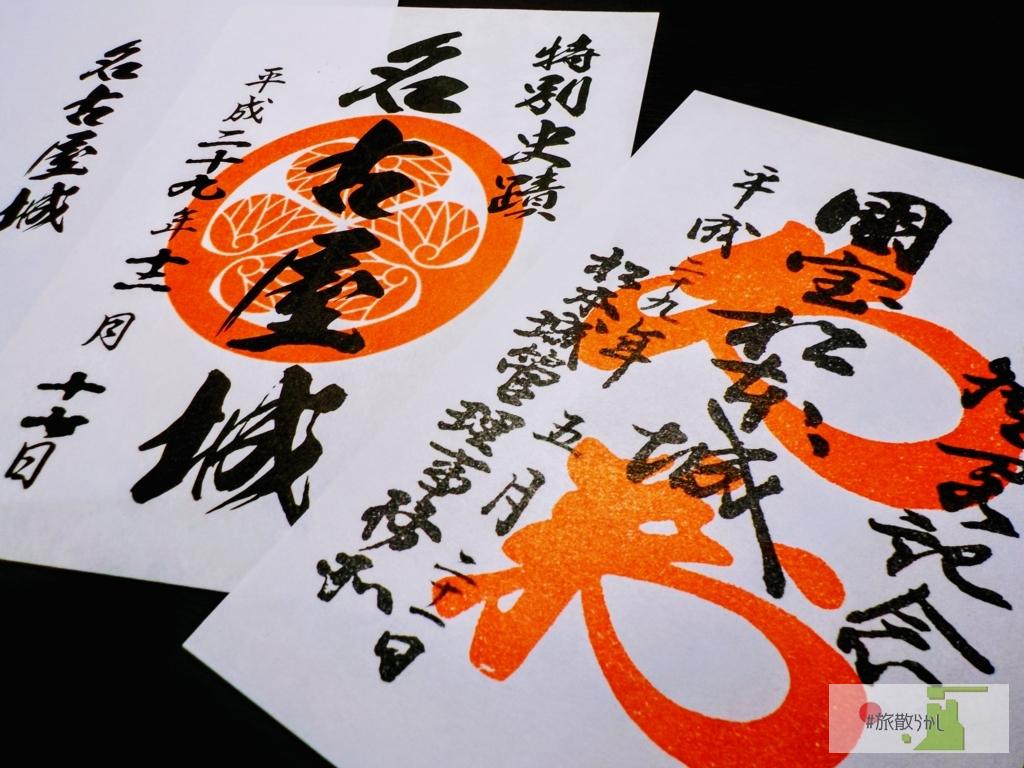 特別史蹟
名古屋城
平成二十九年
月
十七日
名古屋城
記念
國宝松本城
平成二十九年五月二十一日
松本城管理事務所
#旅散らかし